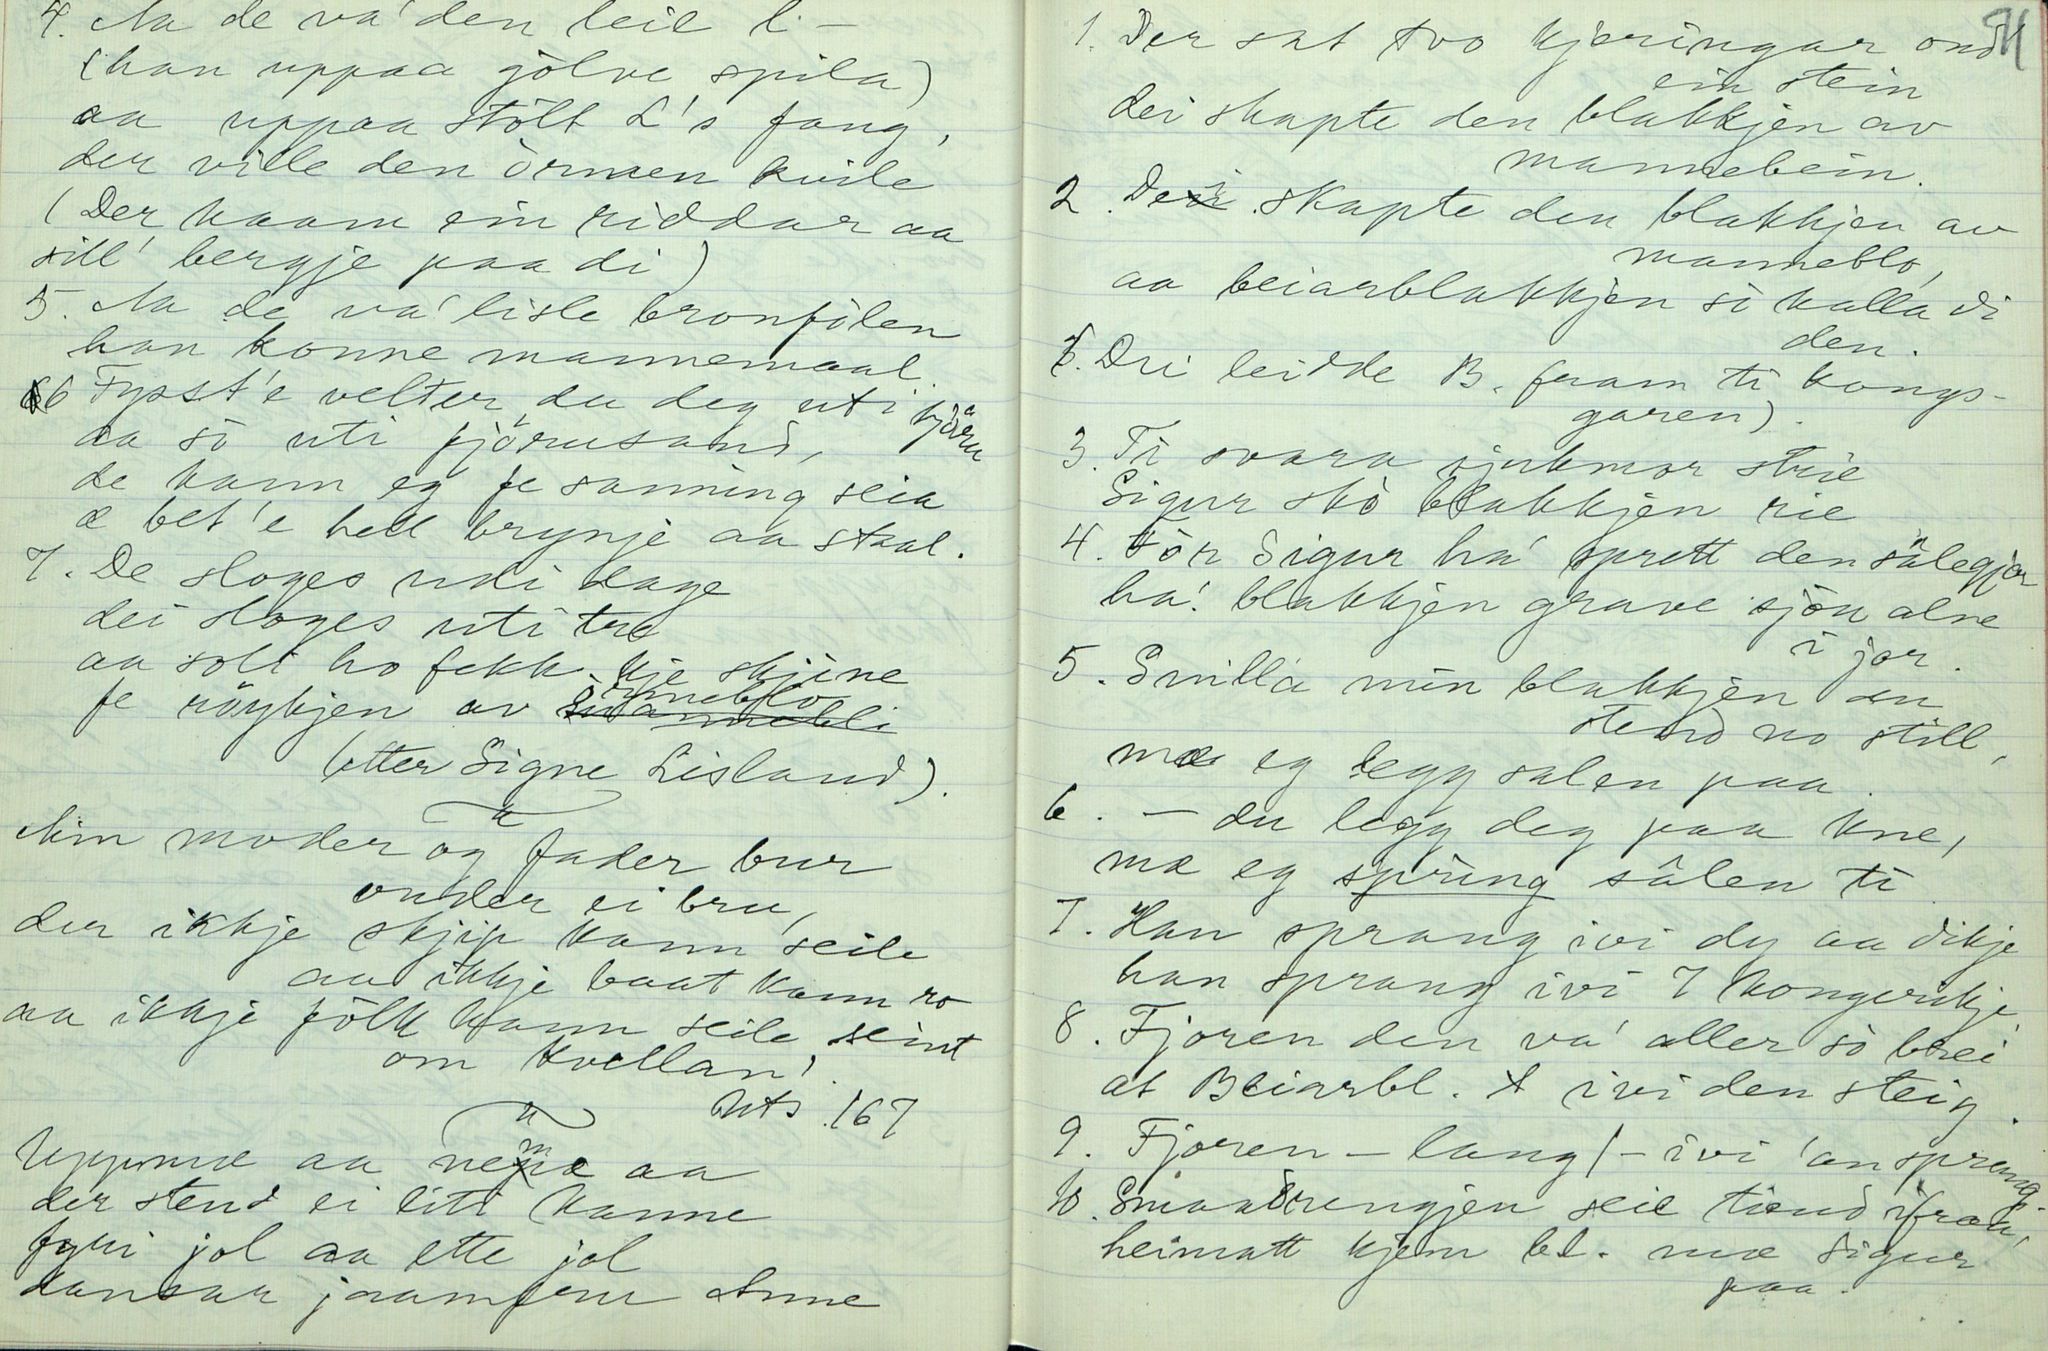 4. Aa de va' den leie l –
(han uppaa gòlve spila)
aa uppaa stölt L's fang,
der ville den òrmen kvile
(Der kaam ein riddar aa
sill' bergje paa di)
5. Aa de va' lisle bronfòlen
han konne mannemaal.
6 Fysst'e velter du deg uti tjøru
aa sò uti fjörusand,
de kann eg fe sanning seia
æ bet'e hell brynje aa staal.
7. De sloges udi dage
dei sloges uti tvo
aa soli ho fekk kje skjine
fe röykjen av òrmeblo
(etter Signe Lisland).
Min moder og fader bur
onder ei bru,
der ikkje skjip kann seile
aa ikkje baat kann ro
aa ikkje fòlk kann seile seint
om kvellan'.
Uts. 167
Uppmæ aa nemæ aa
der stend ei liti kanne
fyri jol aa ette jol
dansar jaamfru Anne
91
1. Der sat tvo kjeringar ond
ein stein
dei skapte den blakkjen av
mannebein.
2. Dei skapte den blakkjen av
manneblo,
aa beiarblakkjen sò kalla di
den.
Dei leidde B. fram ti kongs-
garen).
3. Ti svara sjukmor strie
Sigur skò blakkjen rie
4. Fòr Sigur ha' sprett den sålegjor
ha' blakkjen grave sjöu alne
i jor.
5. Snilla min blakkjen du
stend no still,
mæ eg legg salen paa.
6. – du legg deg paa kne,
mæ eg spring sâlen ti
7. Han sprang ivi dy aa dikje
han sprang ivi 7 kongerikje
8. Fjoren den va' aller sò brei
at Beiarbl. jo ivi den steig.
9. Fjoren – lang / – ivi 'an sprang.
10. Smaadrengjen seie tiend ifraa,
heimatt kjem bl. mæ Sigur
paa.